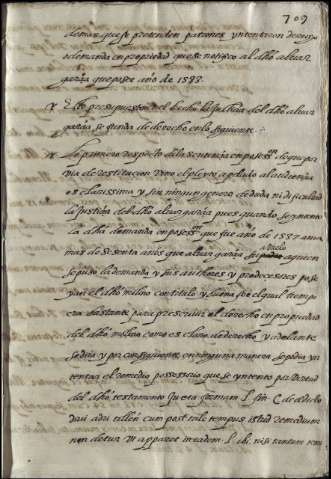 709
demas que se pretenden patrones yntentaron
demanda en propiedad que se notifico al dho alvar
garçia que paso año de 1593.
Esto presupuesto en el hecho la justicia del dho alvar
garçia se funda de derecho en lo siguiente
Lo primero respeto de la sentencia en posesion
via de restitucion vino el pleyto apelado al audiencia
es clarissima y sin ningun genero de duda ni dificultad
la justicia del dho alvar garçia pues quando se yntento
la dha demanda en que fue año de 1587 avia
mas de sesenta años que alvar garçia aquien
se puso la demanda y sus autores y predecesores pose
yan el dho molino con titulo y buena fee el qual tiempo
era bastante para prescrivir el derecho en propiedad
del dho molino como es claro de derecho y adelante
se dira y por consiguiente en ninguna manera se podia yn
tentar el remedio possessorio que se yntento por virtud
del dho testamento iuxta formam l. fin. C. de edicto
divi adri. tollen. cum post tale tempus istud remedium
non detur ut apparet in eadem l. ibi. nisi tantum tem